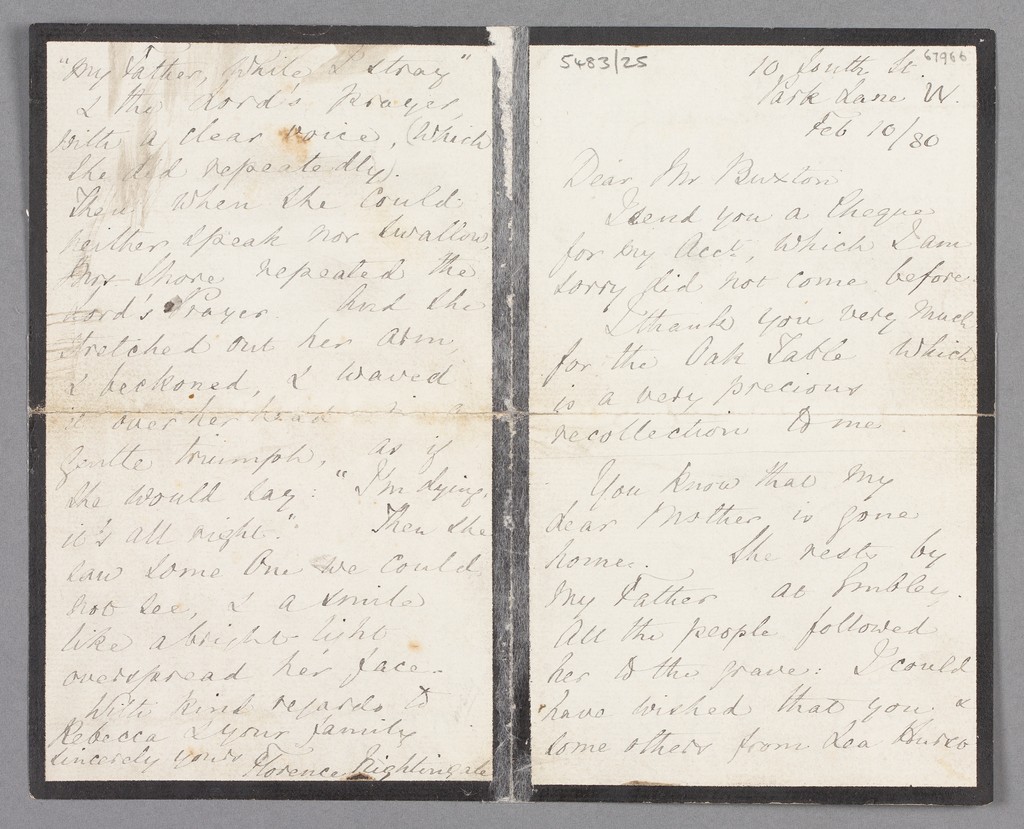 5483/25
67966
10 South St.
Park Lane W.
Feb 10/80
Dear Mr Buxton
I send you a Cheque
for my Acct., which I am
sorry did not come before.
I thank you very much
for the Oak Table which
is a very precious
recollection to me.
You know that my
dear Mother is gone
home. She rests by
my Father at Embley.
All the people followed
her to the grave: I could
have wished that you &
some others from Lea Hurst
"My Father, while I stray"
& the Lord's prayer,
with a clear voice, (which
she did repeatedly).
Then when she could
neither speak nor swallow,
Mrs Shore repeated the
Lord's Prayer. And she
stretched out her arm,
& beckoned, & waved
it over her head in a
gentle triumph, as if
she would say: "I'm dying,
it's all right." Then she
saw some One we could
not see, & a smile
like a bright light
overspread her face.
With kind regards to
Rebecca & your family
sincerely yours Florence Nightingale